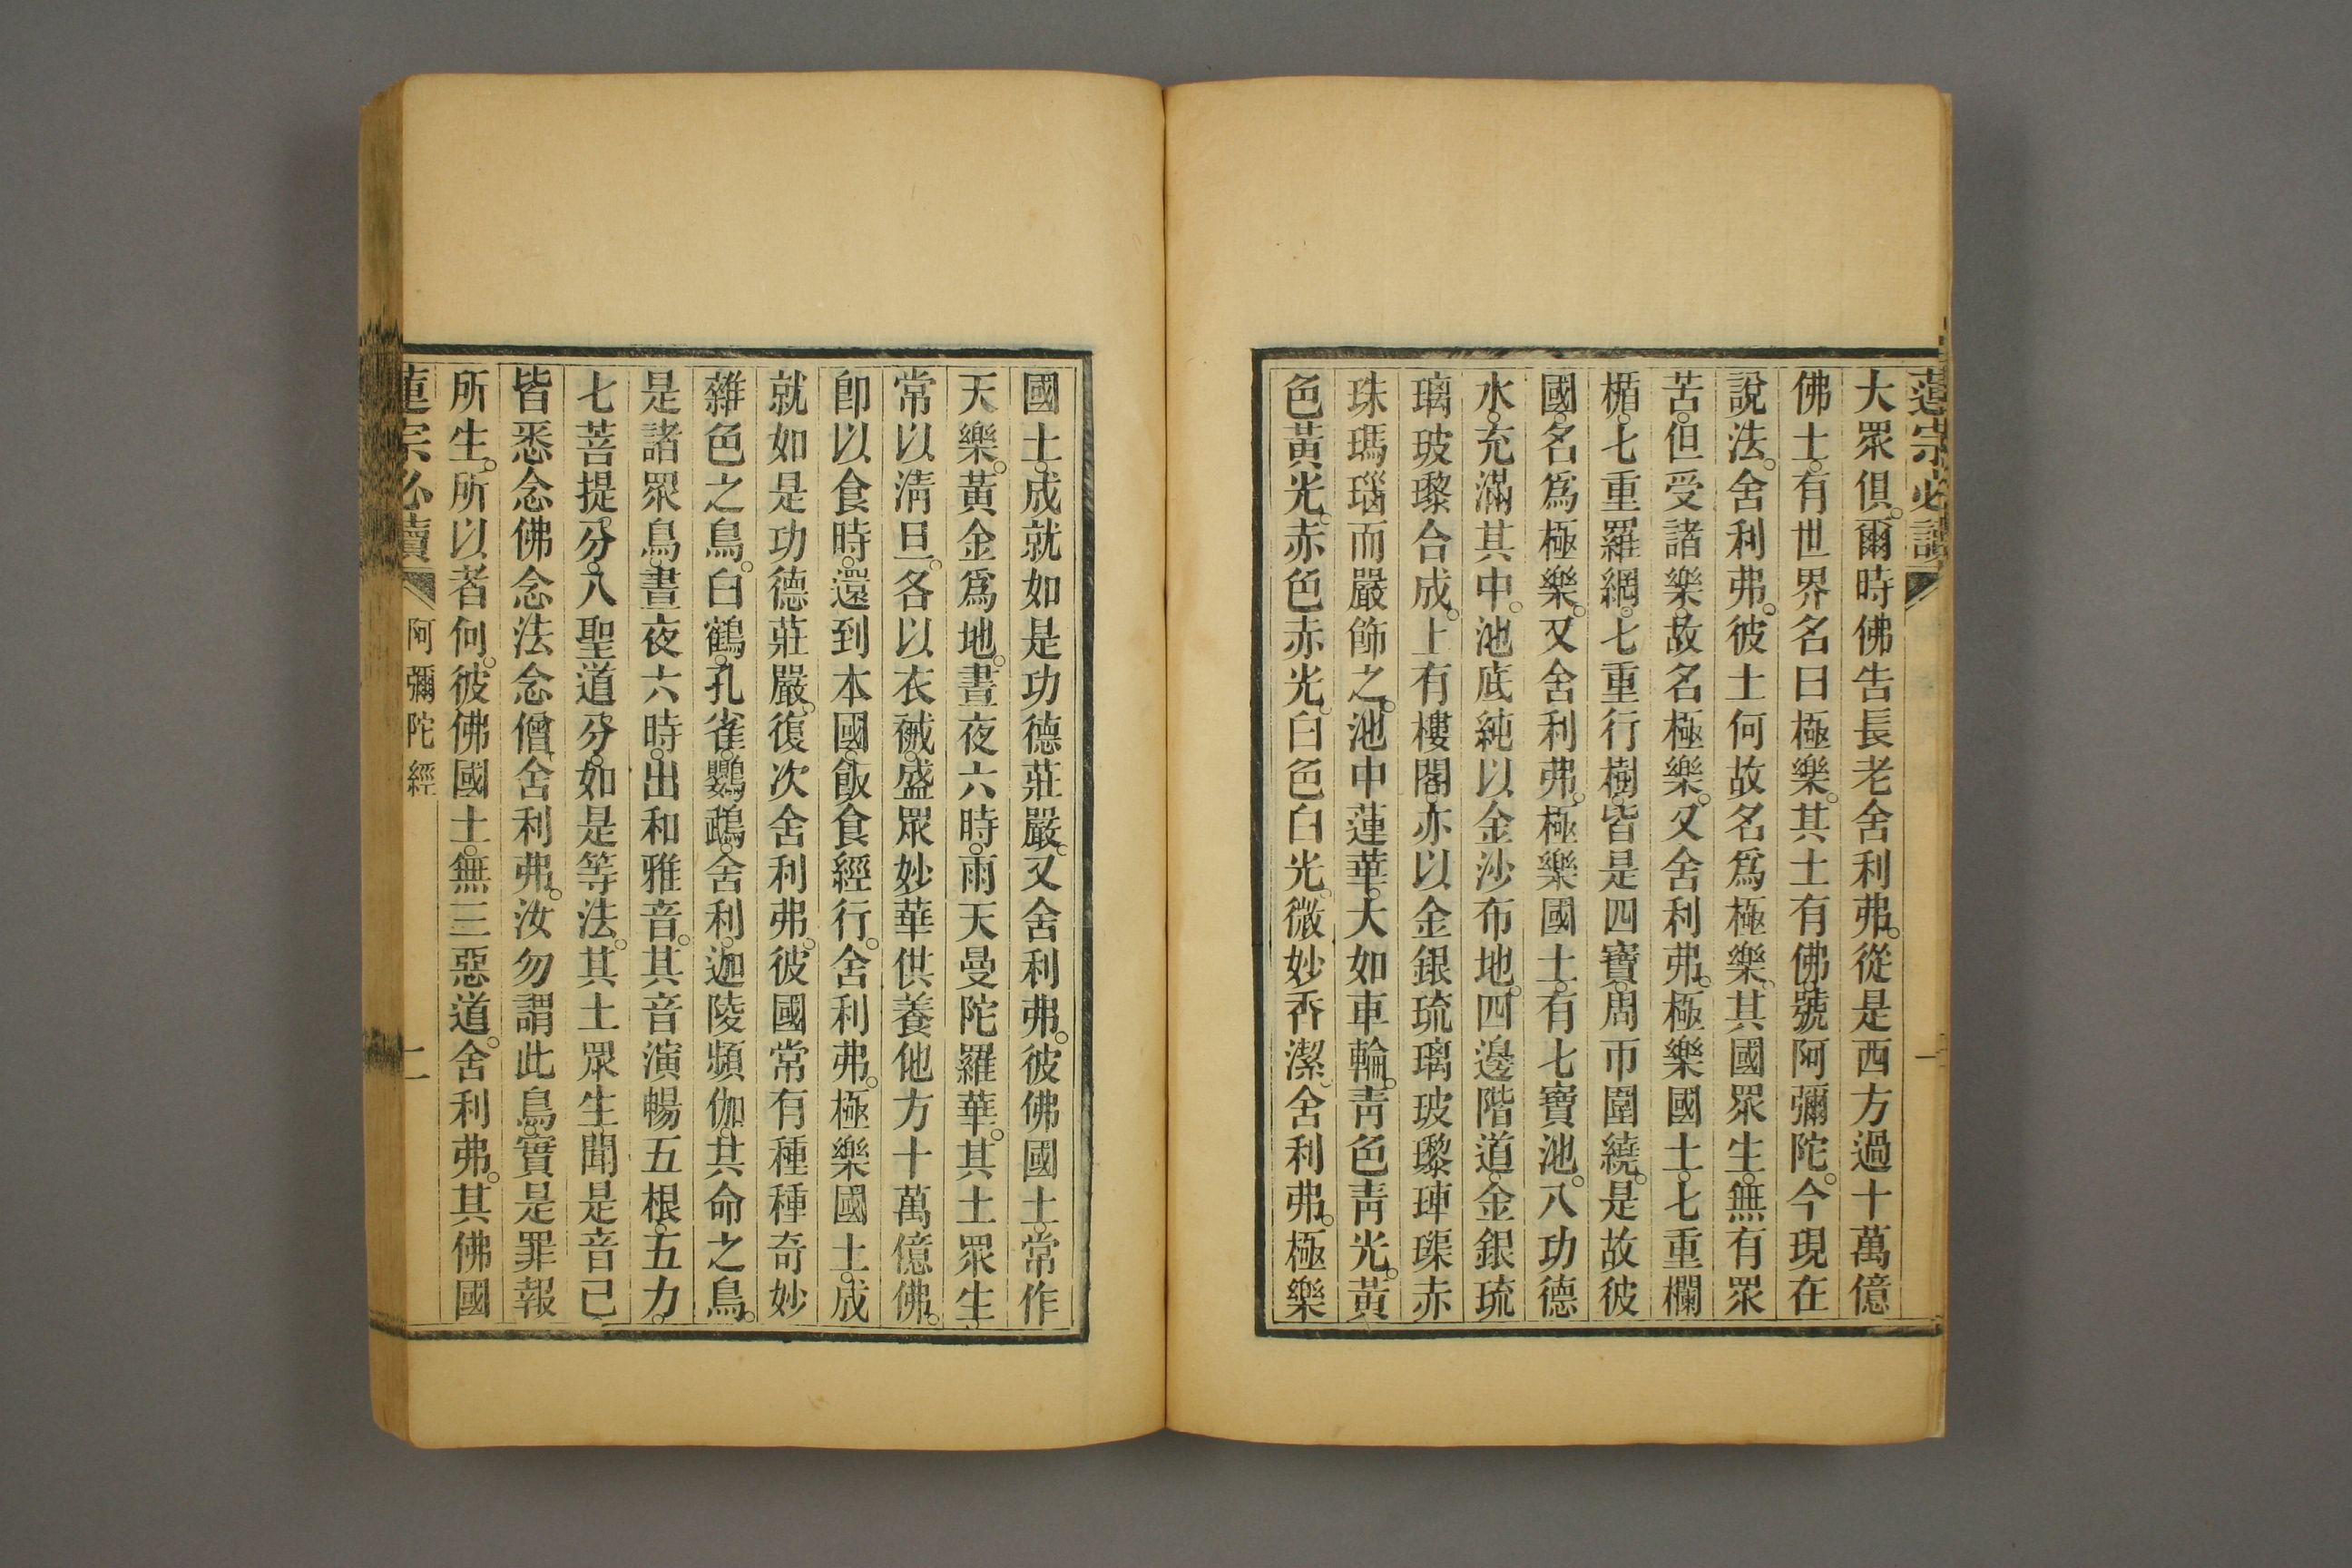 蓮宗必讀
一
大眾俱。爾時佛告長老舍利弗。從是西方過十萬億
佛土。有世界名曰極樂。其土有佛。號阿彌陀。今現在
說法。舍利弗。彼土何故名爲極樂。其國眾生。無有眾
苦。但受諸樂。故名極樂。又舍利弗。極樂國土。七重欄
楯。七重羅網。七重行樹。皆是四寶。周帀圍繞。是故彼
國。名爲極樂。又舍利弗。極樂國土。有七寶池。八功德
水。充滿其中。池底純以金沙布地。四邊階道。金銀琉
璃玻瓈合成。上有樓閣。亦以金銀琉璃玻瓈硨磲赤
珠瑪瑙而嚴飾之。池中蓮華。大如車輪。青色青光。黃
色黃光。赤色赤光。白色白光。微妙香潔。舍利弗。極樂
國土。成就如是功德莊嚴。又舍利弗。彼佛國土。常作
天樂。黃金爲地。晝夜六時。雨天曼陀羅華。其土眾生。
常以清旦。各以衣祴。盛眾妙華。供養他方十萬億佛。
卽以食時。還到本國。飯食經行。舍利弗。極樂國土。成
就如是功德莊嚴。復次舍利弗。彼國常有種種奇妙
雜色之鳥。白鶴。孔雀。鸚鵡。舍利。迦陵頻伽。共命之鳥。
是諸眾鳥。晝夜六時。出和雅音。其音演暢五根。五力。
七菩提分。八聖道分。如是等法。其土眾生。聞是音已。
皆悉念佛念法念僧。舍利弗。汝勿謂此鳥。實是罪報
所生。所以者何。彼佛國土。無三惡道。舍利弗。其佛國
蓮宗必讀
阿彌陀經
二